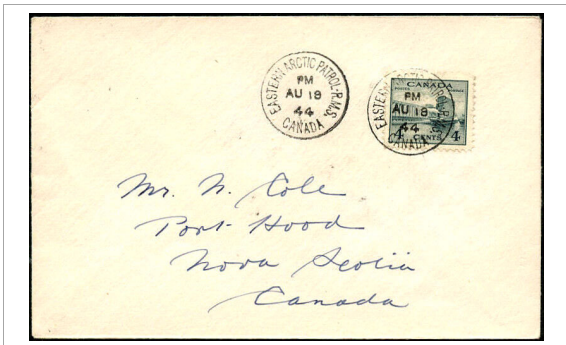 EASTERN ARCTIC PATROL-R.M.S.
PM
AU 18
44
CANADA
EASTERN ARCTIC PATROL-R.M.S.
PM
AU 18
44
CANADA
CANADA
4 CENTS 4
Mr. N. Cole
Port Hood
Nova Scotia
Canada